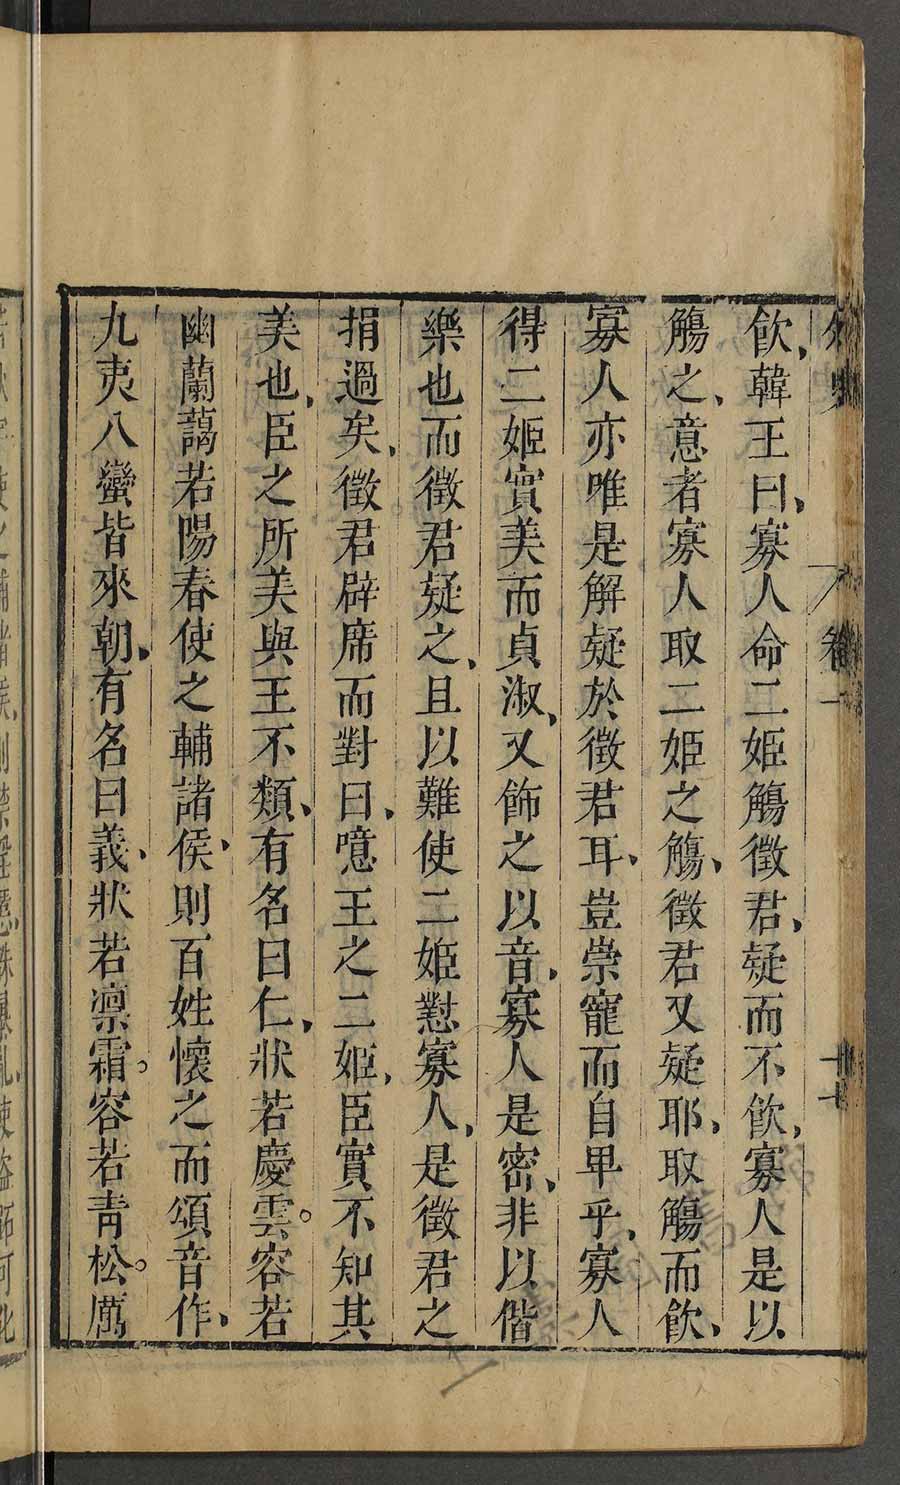 外史
卷一
十七
飲、韓王曰、寡人命二姬觴徵君、疑而不飲、寡人是以
觴之、意者寡人取二姬之觴、徵君又疑耶、取觴而飲、
寡人亦唯是解疑於徵君耳、豈崇寵而自卑乎、寡人
得二姬實美而貞淑、又飾之以音、寡人是密、非以偕
樂也而徵君疑之、且以難使二姬懟寡人、是徵君之
捐過矣、徵君辟席而對曰、噫王之二姬、臣實不知其
美也、臣之所美與王不類、有名曰仁、狀若慶雲。容若
幽蘭藹若陽春使之輔諸侯、則百姓懷之而頌音作、
九夷八蠻皆來朝、有名曰義、狀若凛霜。容若青松。厲